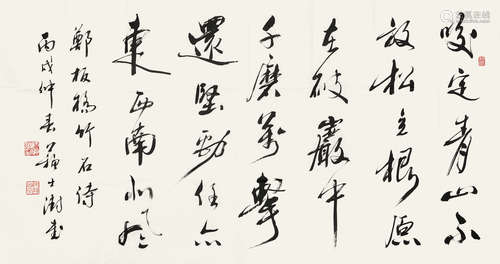 咬定青山不
放松立根原
在破巖中
千磨萬擊
還堅勁任尔
東西南北风
鄭板橋竹石诗
丙戌仲春蘇士澍书